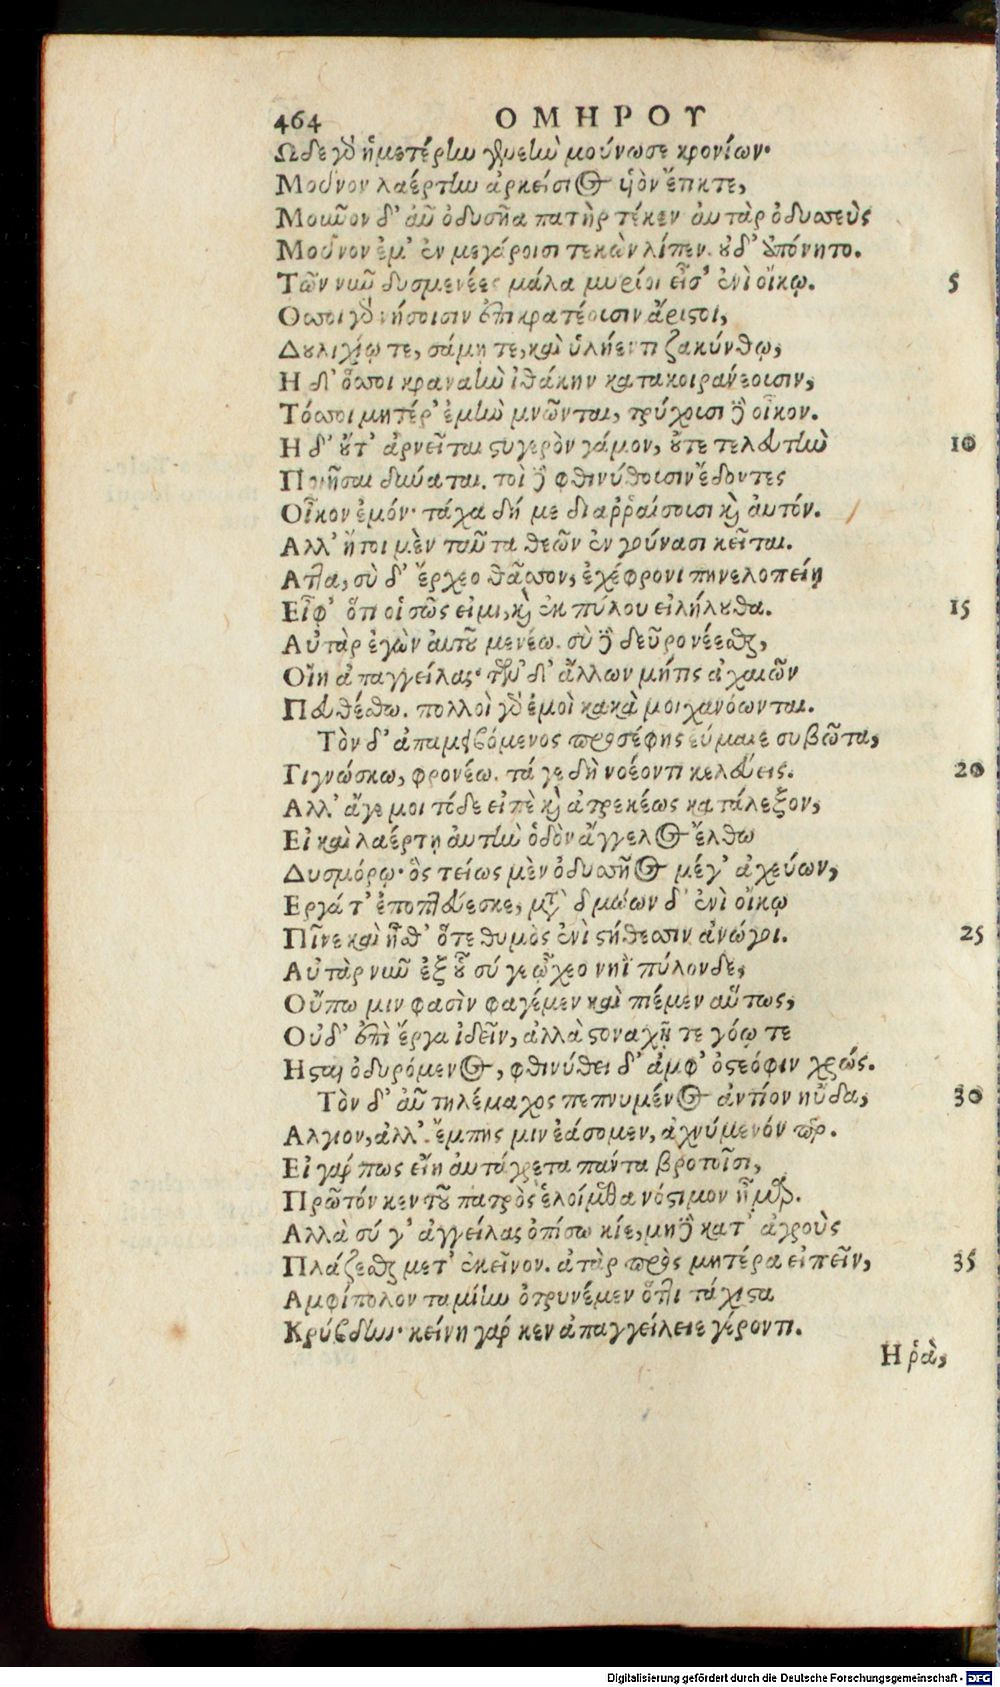 464 ΟΜΗΡΟΥ
Ωδε γὸ ἡμετέρην γενεὴν μούνωσε κρονίων·
Μοῦνον λαέρτην ἀρκείσιος υἱὸν ἔτικτε,
Μοῦνον δ' αὖ ὀδυσῆα πατὴρ τέκεν· αὐτὰρ ὀδυσσεὺς
Μοῦνον ἔμ' ἐν μεγάροισι τεκὼν λίπεν. ȣδ' ἀπόνητο.
Τῶν νῦν δυσμενέες μάλα μυρίοι εἰσ' ἐνὶ οἴκῳ. 5
Οσσοι γὸ νήσοισιν ἐπικρατέουσιν ἄριστοι,
Δȣλιχίῳ τε, σάμῃ τε, καὶ ὑλήεντι ζακύνθῳ,
Η δ' ὅσσοι κραναὴν ἰθάκην κατακοιρανέουσιν,
Τόσσοι μητέρ' ἐμὴν μνῶνται, τρύχουσι δὲ οἶκον.
Η δ' ȣ̓́τ' ἀρνεῖται στυγερὸν γάμον, ȣ̓́τε τελευτὴν 10
Ποιῆσαι δύναται. τοὶ δὲ φθινύθουσιν ἔδοντες
Οἶκον ἐμόν· τάχα δή με διαῤῥαίσουσι καὶ αὐτόν.
Αλλ' ἤτοι μὲν ταῦτα θεῶν ἐν γούνασι κεῖται.
Αττα, σὺ δ' ἔρχεο θᾶσσον, ἐχέφρονι πηνελοπείῃ
Εἴφ' ὅτι οἱ σῶς εἰμι, καὶ ἐκ πύλου εἰλήλȣθα. 15
Αὐτὰρ ἐγὼν αὐτȣ͂ μενέω. σὺ δὲ δεῦρο νέεσθαι,
Οἴῃ ἀπαγγείλας· τῶν δ' ἄλλων μήτις ἀχαιῶν
Πευθέσθω. πολλοὶ γὸ ἐμοὶ κακὰ μοιχανόωνται.
Τὸν δ' ἀπαμειβόμενος προσέφης εὔμαιε συβῶτα,
Γιγνώσκω, φρονέω. τά γε δὴ νοέοντι κελεύεις. 20
Αλλ' ἄγε μοι τόδε εἰπὲ καὶ ἀτρεκέως κατάλεξον,
Εἰ καὶ λαέρτῃ αὐτὴν ὁδὸν ἄγγελος ἔλθω
Δυσμόρῳ· ὃς τείως μὲν ὀδυσσῆος μέγ' ἀχεύων,
Εργά τ' ἐποπτεύεσκε, μετὰ δμώων δ' ἐνὶ οἴκῳ
Πῖνε καὶ ἦσθ' ὅτε θυμὸς ἐνὶ στήθεσσιν ἀνώγοι. 25
Αὐτὰρ νῦν ἐξ ȣ͗͂ σύ γε ᾤχεο νηῒ πύλονδε,
Οὔπω μιν φασὶν φαγέμεν καὶ πιέμεν αὔτως,
Οὐδ' ἐπὶ ἔργα ἰδεῖν, ἀλλὰ στοναχῇ τε γόῳ τε
Ησται ὀδυρόμενος, φθινύθει δ' ἀμφ' ὀστεόφιν χρώς.
Τὸν δ' αὖ τηλέμαχος πεπνυμένος ἀντίον ηὔδα, 30
Αλγιον, ἀλλ' ἔμπης μιν ἐάσομεν, ἀχνύμενόν περ.
Εἰ γάρ πως εἴη αὐτάγρετα πάντα βροτοῖσι,
Πρῶτόν κεν τȣ͂ πατρὸς ἑλοίμεθα νόστιμον ἦμαρ.
Αλλὰ σύ γ' ἀγγείλας ὀπίσω κίε, μηδὲ κατ' ἀγροὺς
Πλάζεσθαι μετ' ἐκεῖνον. ἀτὰρ πρὸς μητέρα εἰπεῖν, 35
Αμφίπολον ταμίην ὀτρυνέμεν ὅττι τάχιστα
Κρύβδην· κείνη γάρ κεν ἀπαγγείλειε γέροντι.
Η ῥὰ,
Digitalisierung gefördert durch die Deutsche Forschungsgemeinschaft - DFG